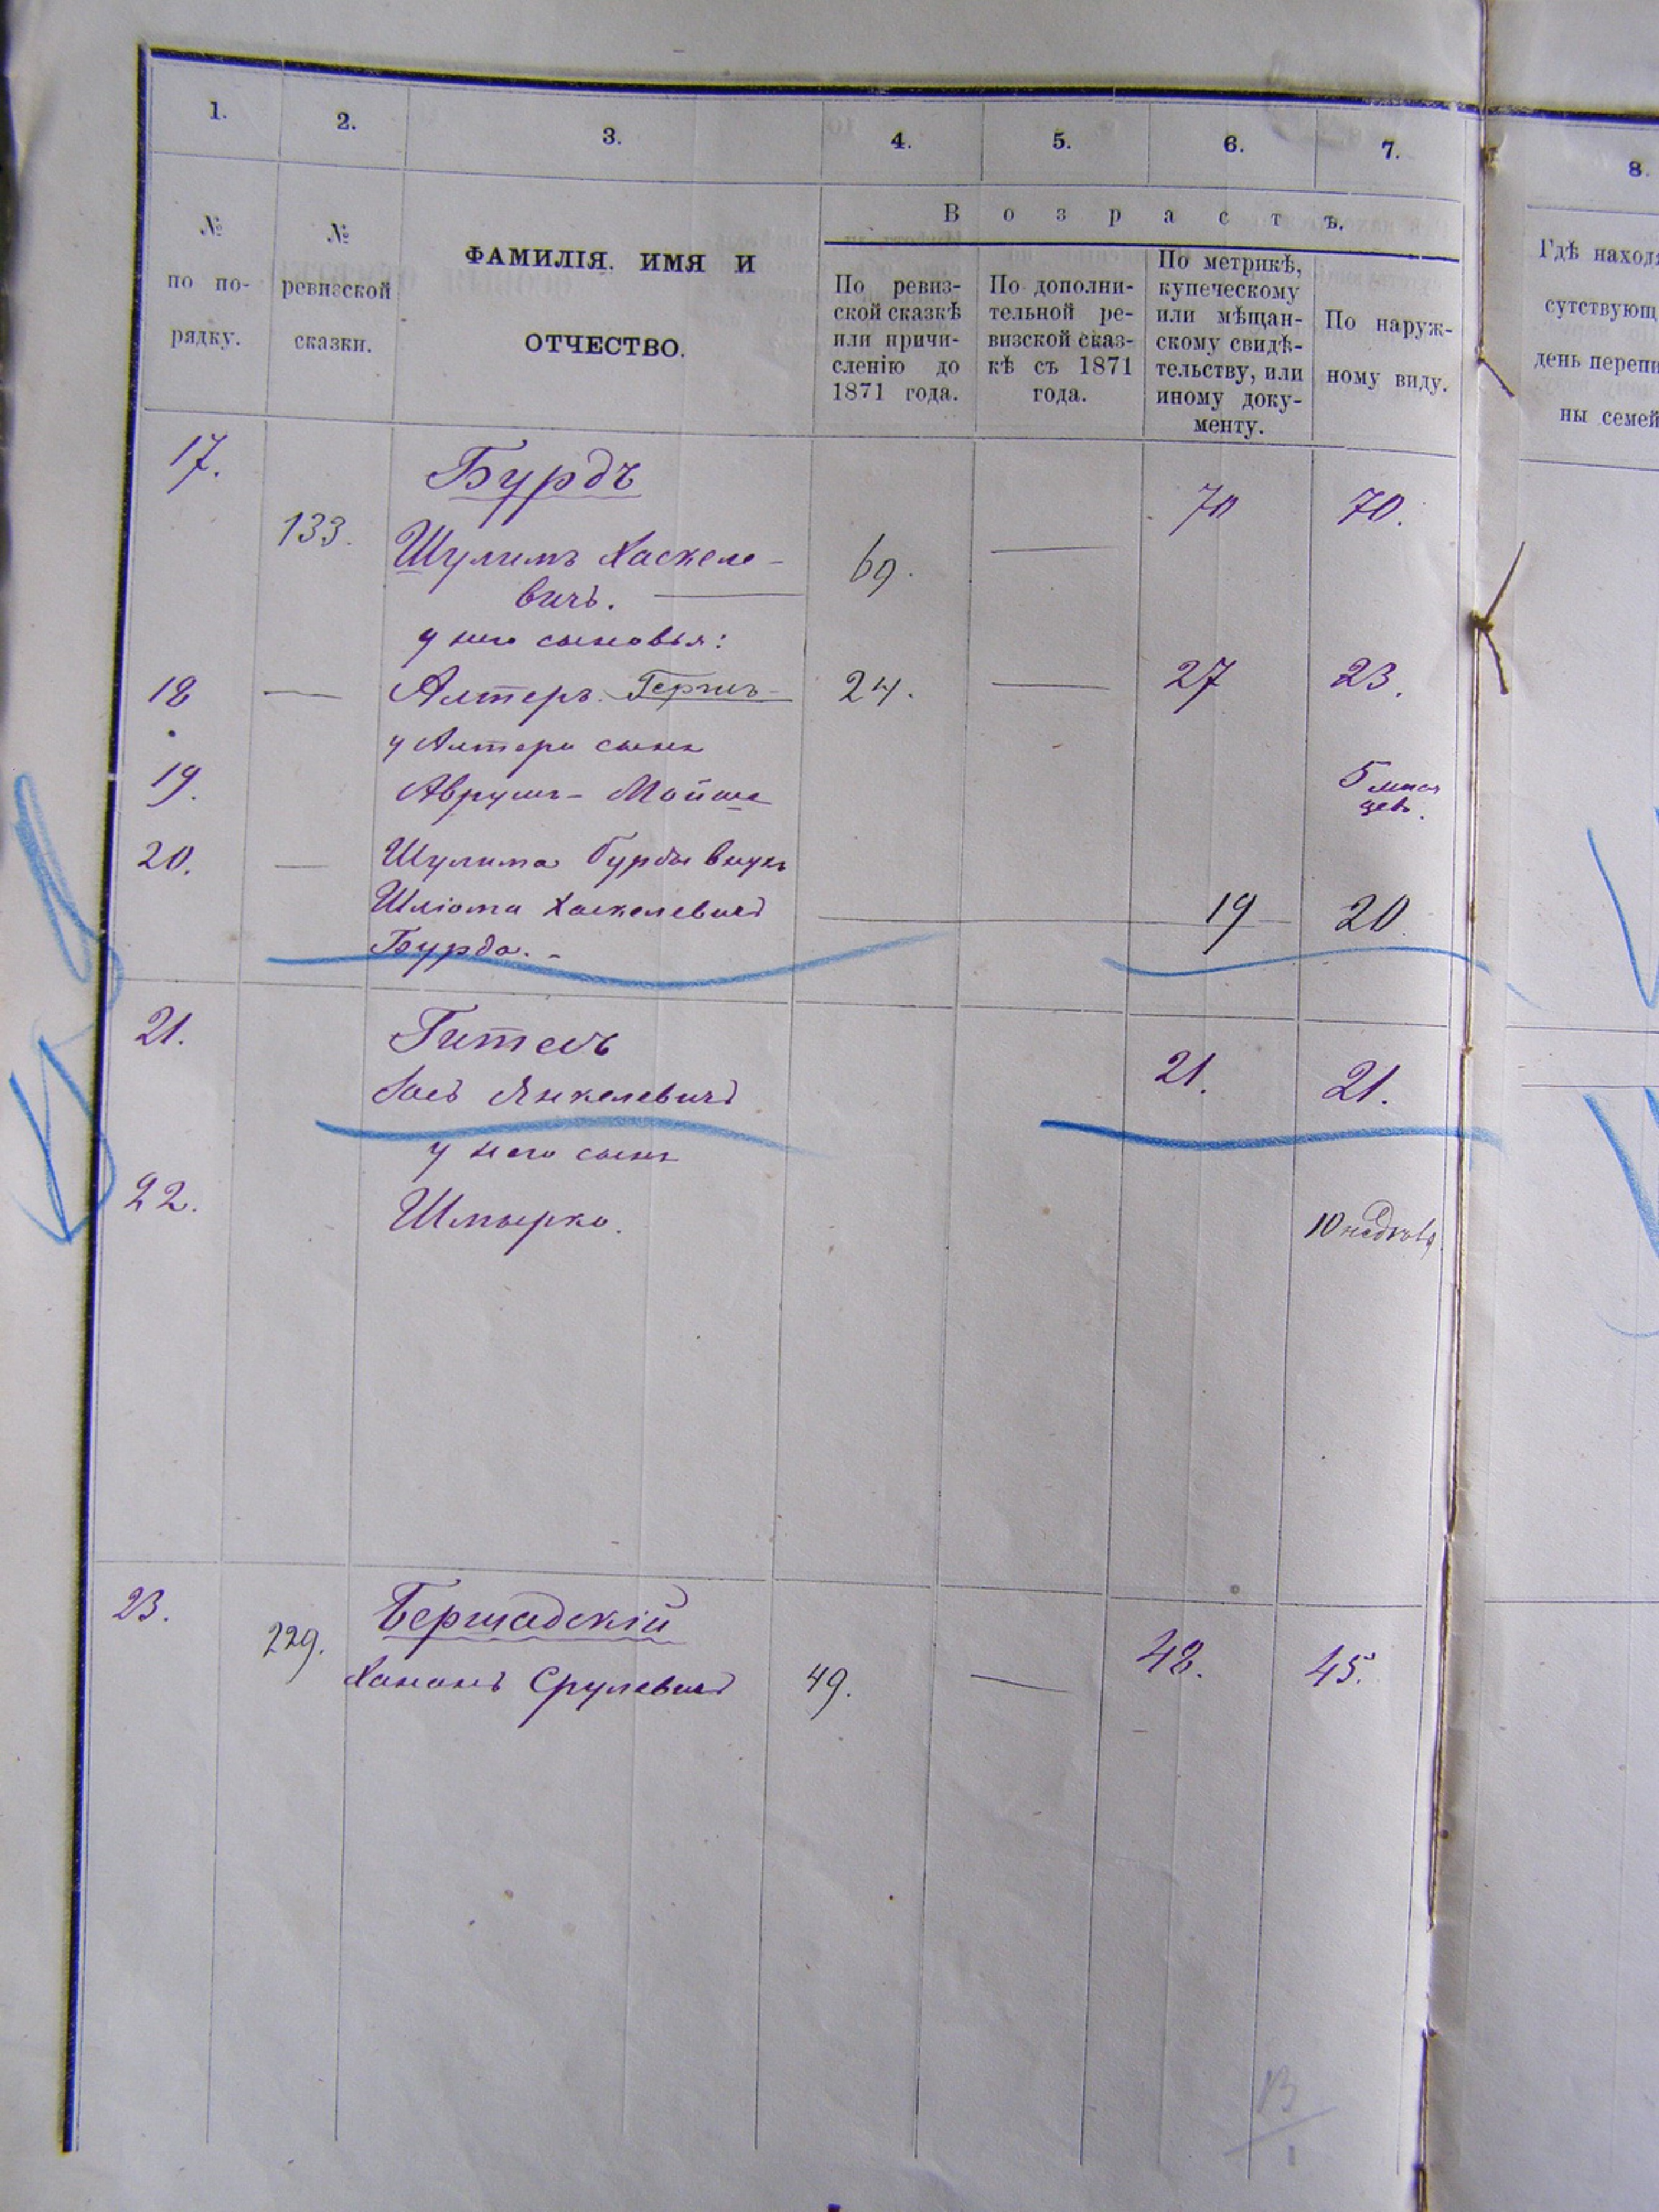 1.
2.
3.
4.
5.
6.
7.
8.
№
по по-
рядку.
№
ревизской
сказки.
ФАМИЛІЯ, ИМЯ И
ОТЧЕСТВО.
Возрастъ.
По ревиз-
ской сказкѣ
или причи-
сленію до
1871 года.
По дополни-
тельной ре-
визской сказ-
кѣ съ 1871
года.
По метрикѣ,
купеческому
или мѣщан-
скому свидѣ-
тельству, или
иному доку-
менту.
По наруж-
ному виду.
Гдѣ наход
сутствующ
день переп
ны семей
17.
Бурдъ
133.
Шулимъ Хаскеле-
вичъ.
69.
—
70
70.
у него сыновья:
18
—
Алтеръ Гершъ
24.
—
27
23.
у Алтера сынъ
19.
Аврумъ-Мойше
5 мѣся
цев.
20.
—
Шулима Бурды внукъ
Шліома Хаскелевичъ
Бурда.-
19
20
21.
Гительъ
Янкелевичъ
21.
21.
у него сынъ
22.
Шмырко.
10 недѣль
23.
Бершадскій
229.
Хананъ Срулевичъ
49.
—
48.
45.